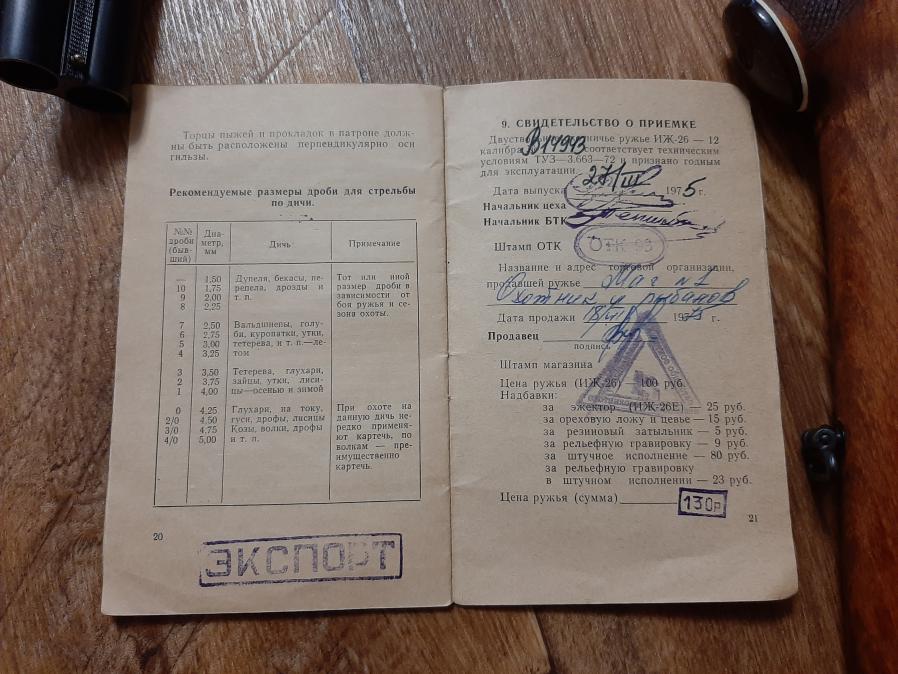 Торцы пыжей и прокладок в патроне долж-
ны быть расположены перпендикулярно оси
гильзы.
Рекомендуемые размеры дроби для стрельбы
по дичи.
№№ дроби (быв- ший) Диа- метр, мм Дичь Примечание
— 1,50 Дупеля, бекасы, пе- Тот или иной
10 1,75 репела, дрозды и размер дроби в
9 2,00 т. п. зависимости от
8 2,25 боя ружья и се-
зона охоты.
7 2,50 Вальдшнепы, голу-
6 2,75 би, куропатки, утки,
5 3,00 тетерева, и т. п.—ле-
4 3,25 том
3 3,50 Тетерева, глухари,
2 3,75 зайцы, утки, лиси-
1 4,00 цы—осенью и зимой
0 4,25 Глухари, на току, При охоте на
2/0 4,50 гуси, дрофы, лисицы данную дичь не-
3/0 4,75 Козы, волки, дрофы редко применя-
4/0 5,00 и т. п. ют картечь, по
волкам — пре-
имущественно
картечь.
20
ЭКСПОРТ
9. СВИДЕТЕЛЬСТВО О ПРИЕМКЕ
ружье ИЖ-26 — 12
В14943
калибра соответствует техническим
условиям ТУЗ—3.663—72 и признано годным
для эксплуатации.
Дата выпуска 27/III 1975 г.
Начальник цеха
Начальник БТК
Штамп ОТК ОТК 93
Название и адрес торговой организации,
продавшей ружье Маг №1
Охотник и
Дата продажи г.
Продавец
подпись
Штамп магазина
Цена ружья (ИЖ-26) — 100 руб.
Надбавки:
за эжектор (ИЖ-26Е) — 25 руб.
за ореховую ложу и цевье — 15 руб.
за резиновый затыльник — 5 руб.
за рельефную гравировку — 9 руб.
за штучное исполнение — 80 руб.
за рельефную гравировку
в штучном исполнении — 23 руб.
Цена ружья (сумма) 130р
21